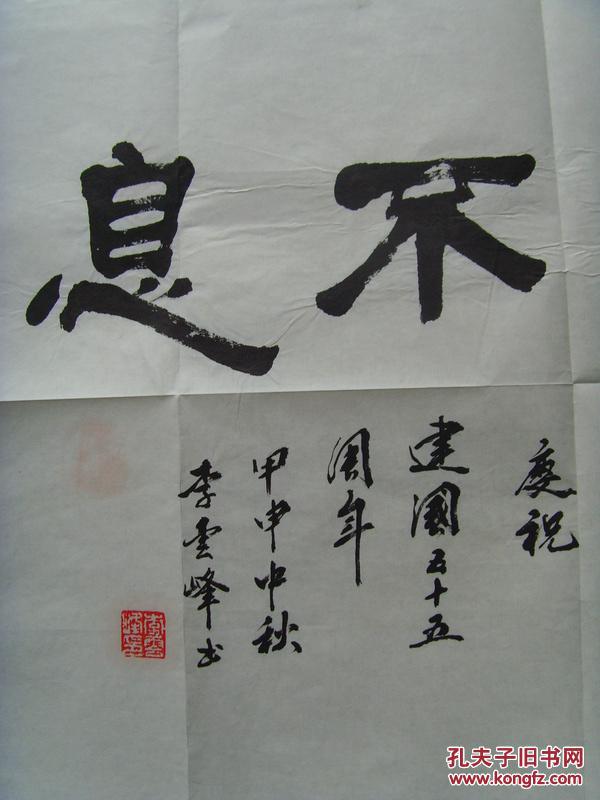 不息
慶祝
建國五十五
周年
甲申中秋
李雲峰书
孔夫子旧书网
www.kongfz.com